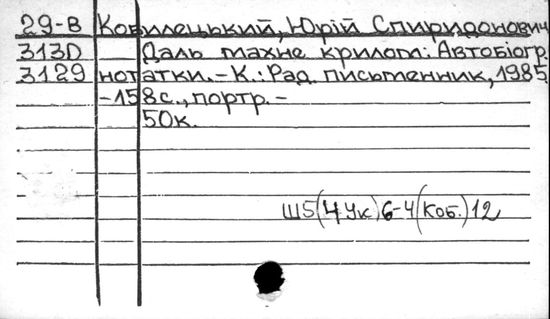 29-В Кобилецький, Юрій Спиридонович
313D Даль махне крилом: Автобіогр.
3129 нотатки.-К.: Рад. письменник, 1985.
-158с., портр.-
50к.
Ш5(4Ук)6-4(Коб.)12